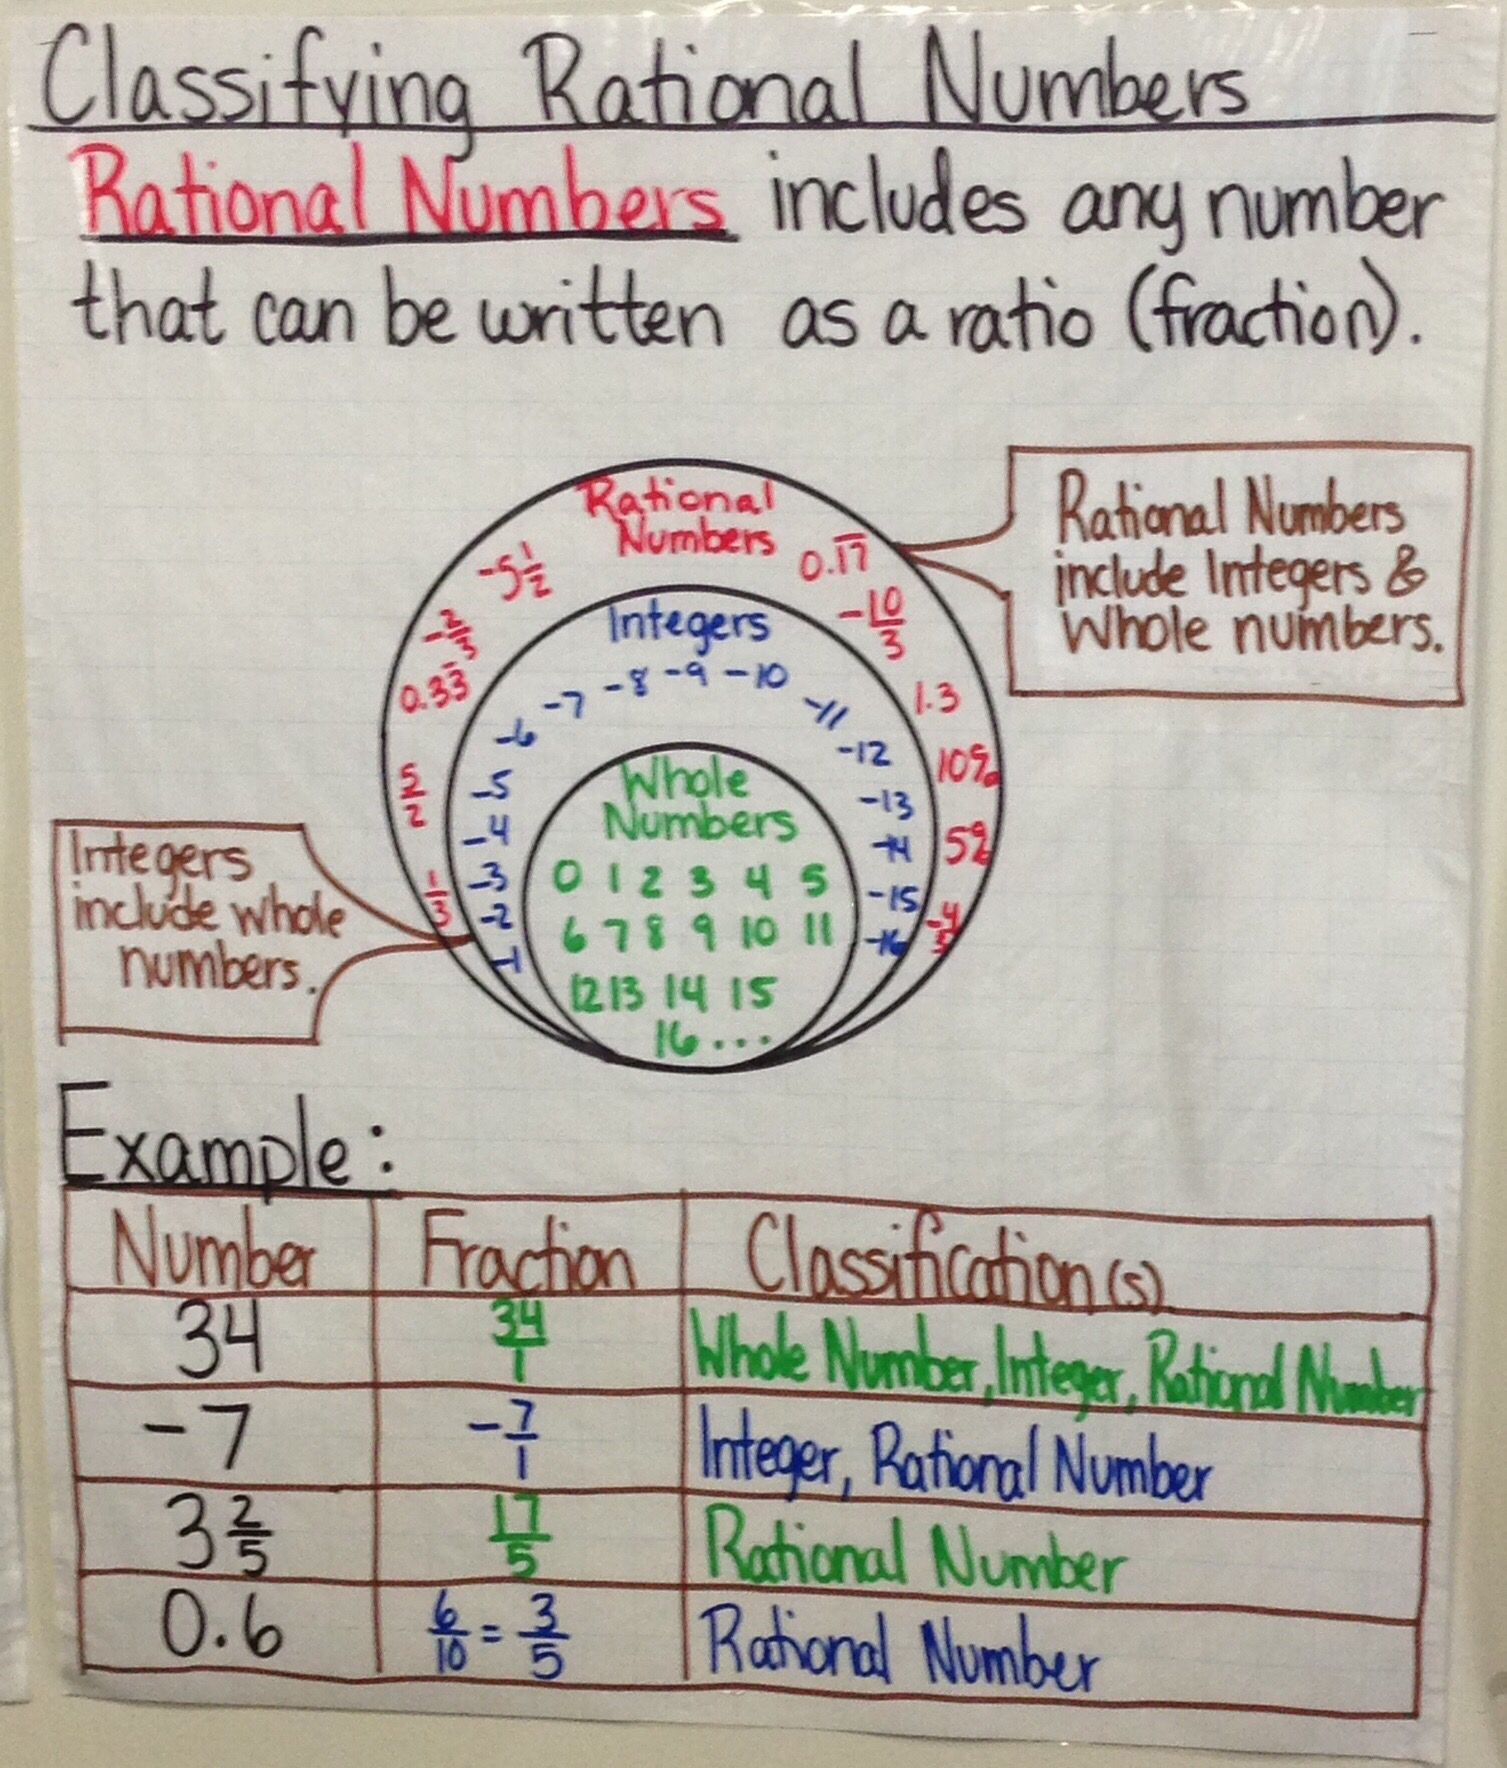 Classifying Rational Numbers
Rational Numbers includes any number
that can be written as a ratio (fraction).
Rational
Numbers
-5 1/2
0.1̅7̅
-2/3
-10/3
0.33̅
1.3
5/2
10%
1/3
-4/5
Integers
-1 -2 -3 -4 -5 -6 -7 -8 -9 -10 -11 -12 -13 -14 -15 -16
Whole
Numbers
0 1 2 3 4 5
6 7 8 9 10 11
12 13 14 15
16...
Rational Numbers
include Integers &
Whole numbers.
Integers
include whole
numbers.
Example:
Number Fraction Classification(s)
34 34/1 Whole Number, Integer, Rational Number
-7 -7/1 Integer, Rational Number
3 2/5 17/5 Rational Number
0.6 6/10 = 3/5 Rational Number